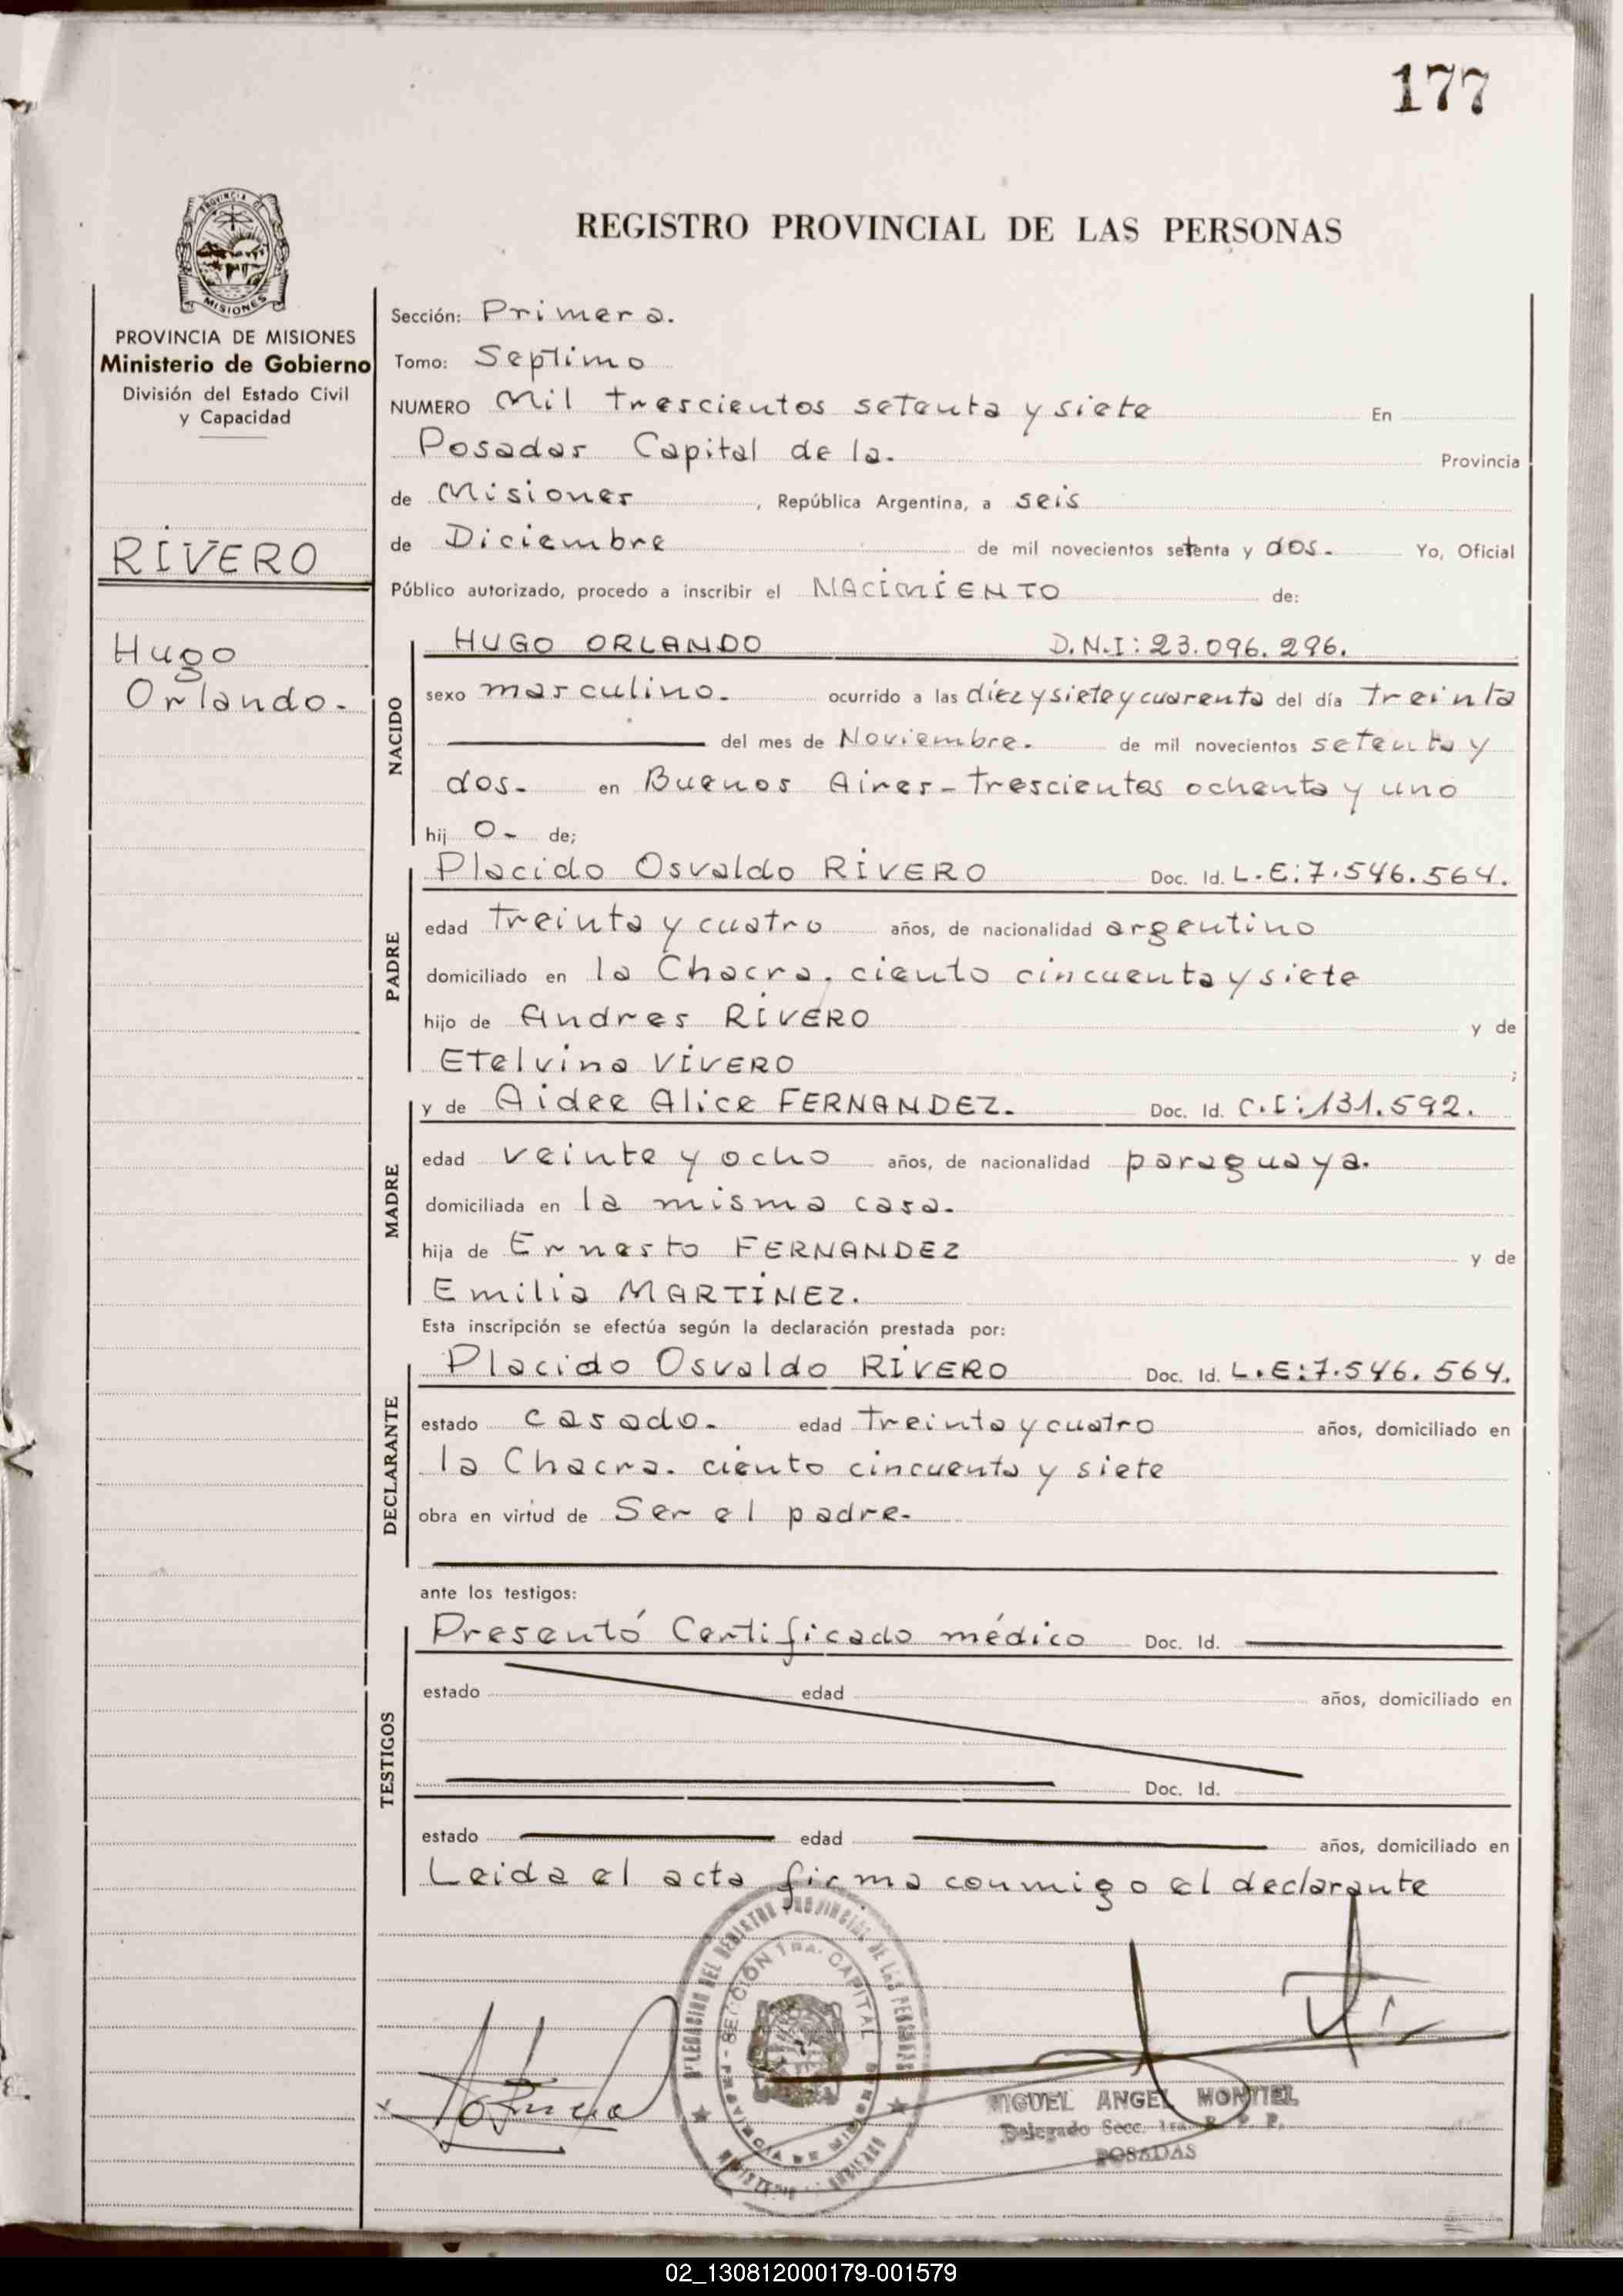 177
PROVINCIA DE
MISIONES
PROVINCIA DE MISIONES
Ministerio de Gobierno
División del Estado Civil
y Capacidad
RIVERO
Hugo
Orlando.-
REGISTRO PROVINCIAL DE LAS PERSONAS
Sección: Primera.
Tomo: Septimo
NUMERO Mil trescientos setenta y siete En
Posadas Capital de la. Provincia
de Misiones, República Argentina, a seis
de Diciembre de mil novecientos setenta y dos.- Yo, Oficial
Público autorizado, procedo a inscribir el NACIMIENTO de:
NACIDO
HUGO ORLANDO D.N.I: 23.096.296.
sexo masculino.- ocurrido a las diez y siete y cuarenta del día treinta
del mes de Noviembre.- de mil novecientos setenta y
dos.- en Buenos Aires - trescientos ochenta y uno
hij o- de;
PADRE
Placido Osvaldo RIVERO Doc. Id. L.E:7.546.564.
edad treinta y cuatro años, de nacionalidad argentino
domiciliado en la Chacra. ciento cincuenta y siete
hijo de Andres RIVERO y de
Etelvina VIVERO ;
MADRE
y de Aidee Alice FERNANDEZ.- Doc. Id. C.I:131.592.
edad veinte y ocho años, de nacionalidad paraguaya.
domiciliada en la misma casa.-
hija de Ernesto FERNANDEZ y de
Emilia MARTINEZ.
Esta inscripción se efectúa según la declaración prestada por:
DECLARANTE
Placido Osvaldo RIVERO Doc. Id. L.E:7.546.564.
estado casado.- edad treinta y cuatro años, domiciliado en
la Chacra. ciento cincuenta y siete
obra en virtud de Ser el padre.-
ante los testigos:
TESTIGOS
Presentó Certificado médico Doc. Id.
estado edad años, domiciliado en
Doc. Id.
estado edad años, domiciliado en
Leida el acta firma conmigo el declarante
DEL REGISTRO PROVINCIAL DE LAS PERSONAS
SECCIÓN 1RA. CAPITAL
PROVINCIA DE
MIGUEL ANGEL MONTIEL
Delegado Secc. 1ra. R. P. P.
POSADAS
02_130812000179-001579